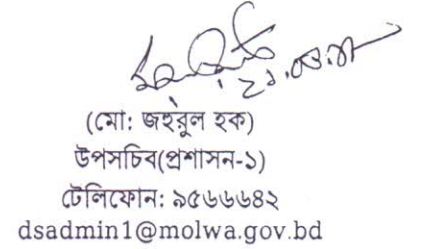 (মো: জহুরুল হক)
উপসচিব(প্রশাসন-১)
টেলিফোন: ৯৫৬৬৬৪২
dsadmin1@molwa.gov.bd